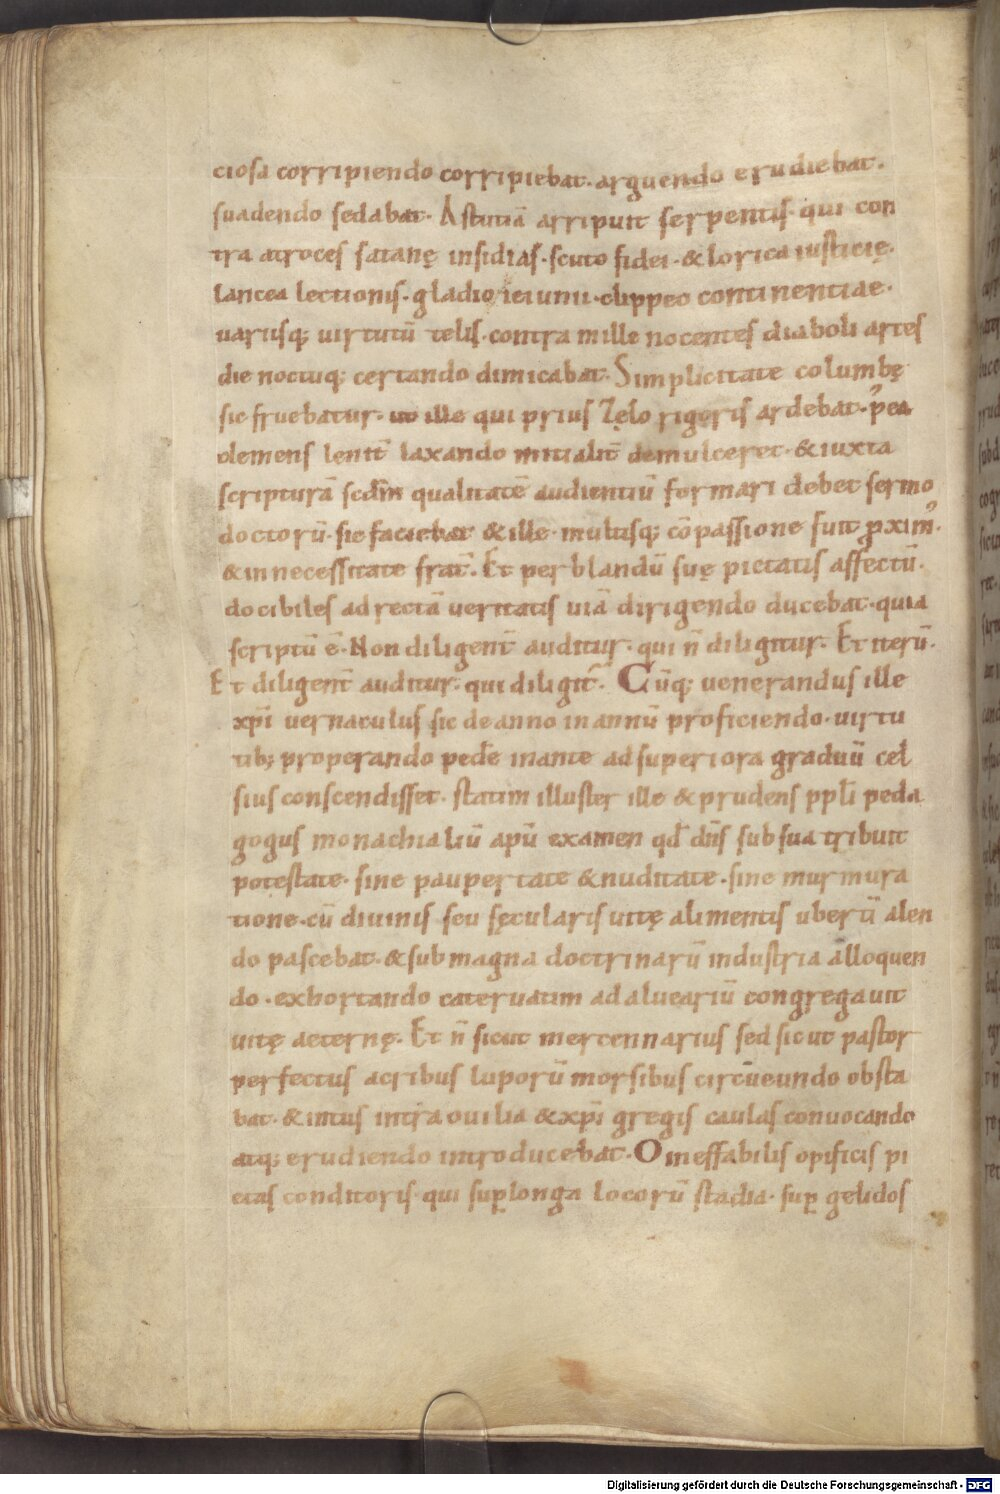 ciosa corripiendo corripiebat. arguendo erudiebat.
suadendo sedabat. Astutiā arripuit serpentis. qui con
tra atroces satanę insidias. scuto fidei. & lorica iusticię.
lancea lectionis. gladio ieiunii. clippeo continentiae.
uariisq; uirtutū telis. contra mille nocentes diaboli artes
die noctuq; certando dimicabat. Simplicitate columbę
sic fruebatur. ut ille qui prius Zelo rigoris ardebat. p̄ea
clemens lenit̄ laxando mitialit̄ demulceret. & iuxta
scripturā scdm̄ qualitatē audientiū formari debet sermo
doctorū. sic faciebat & ille. multisq; cōpassione fuit ꝓxim᾽.
& in necessitate frat̄. Et per blandū suę pietatis affectū.
docibiles ad rectā ueritatis uiā dirigendo ducebat. quia
scriptū ē. Non diligent̄ auditur. qui n̄ diligitur. Et iterū.
Et diligent̄ auditur. qui diligit᷑. Cūq; uenerandus ille
xp̄i uernaculus sic de anno in annū proficiendo. uirtu
tib; properando pede inante ad superiora graduū cel
sius conscendisset. statim illuster ille & prudens ppłi peda
gogus monachaliū apū examen qđ dn̄s sub sua tribuit
potestate. sine paupertate & nuditate. sine murmura
tione. cū diuinis seu sęcularis uitę alimentis ubert̄ alen
do pascebat. & sub magna doctrinarū industria alloquen
do. exhortando cateruatim ad alueariū congregauit
uitę aeternę. Et n̄ sicut mercennarius sed sicut pastor
perfectus acribus luporū morsibus circūeundo obsta
bat. & intus intra ouilia & xp̄i gregis caulas conuocando
atq; erudiendo introducebat. O ineffabilis opificis pi
etas conditoris. qui suꝑ longa locorū stadia. suꝑ gelidos
Digitalisierung gefördert durch die Deutsche Forschungsgemeinschaft - DFG